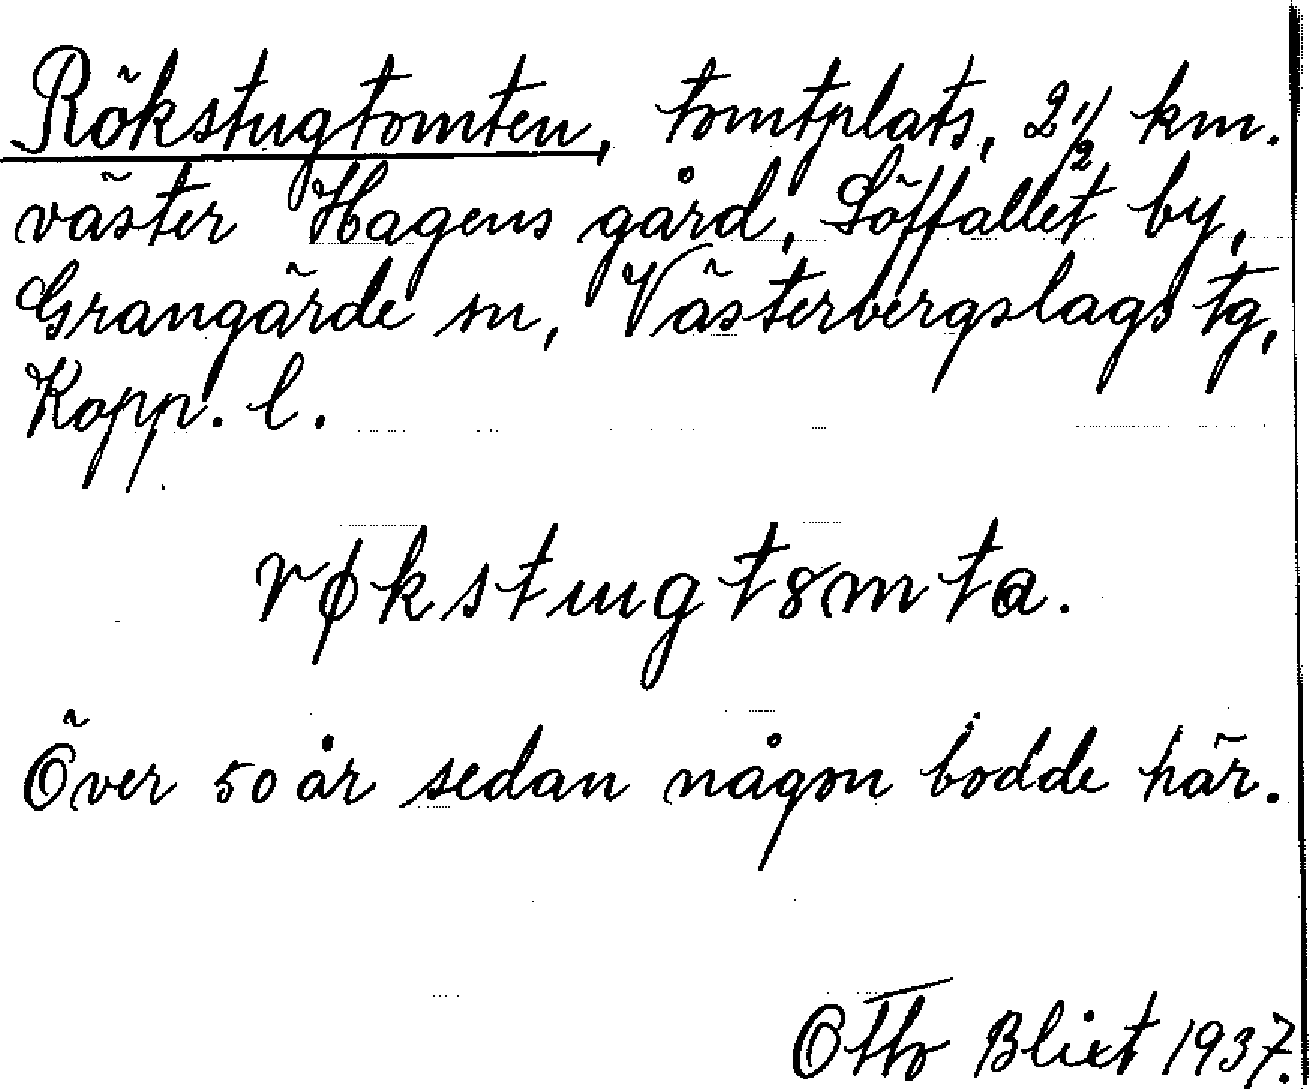 Rökstugtomten, tomtplats, 2 1/2 km.
väster Hagens gård, Löffallet by,
Grangärde sn, Västerbergslags tg,
Kopp. l.
røkstugt8mta.
Över 50 år sedan någon bodde här.
Otto Blixt 1937.